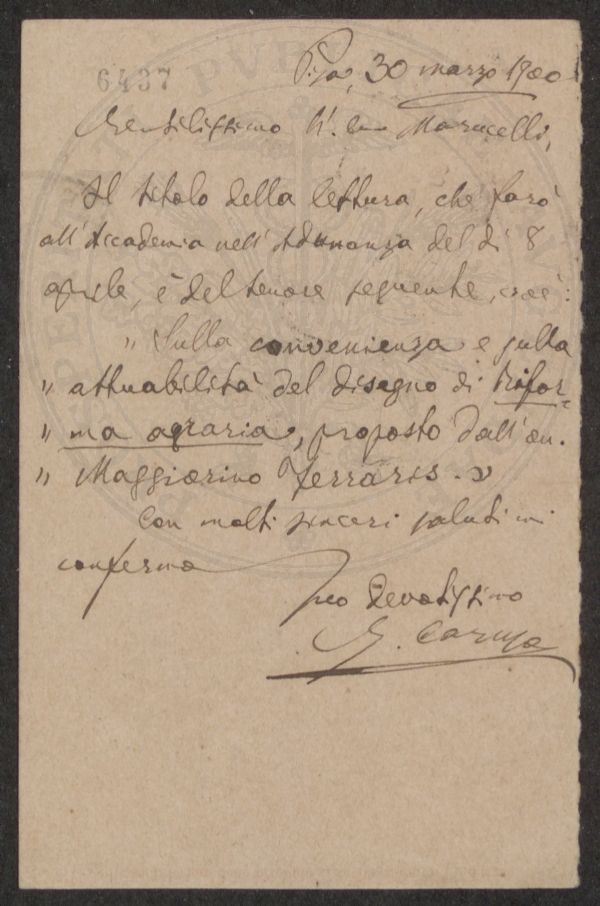 6437
Pisa, 30 marzo 1900
Gentilissimo Marucelli,
Il titolo della lettura, che farò
all'Accademia nell'Adunanza del dì 8
aprile, è del tenore seguente, cioè:
„ Sulla convenienza e sulla
„ attuabilità del disegno di Rifor-
„ ma agraria, proposto dall'on.
„ Maggiorino Ferraris. »
Con molti sinceri saluti mi
confermo
suo Devotissimo
G. Caruso